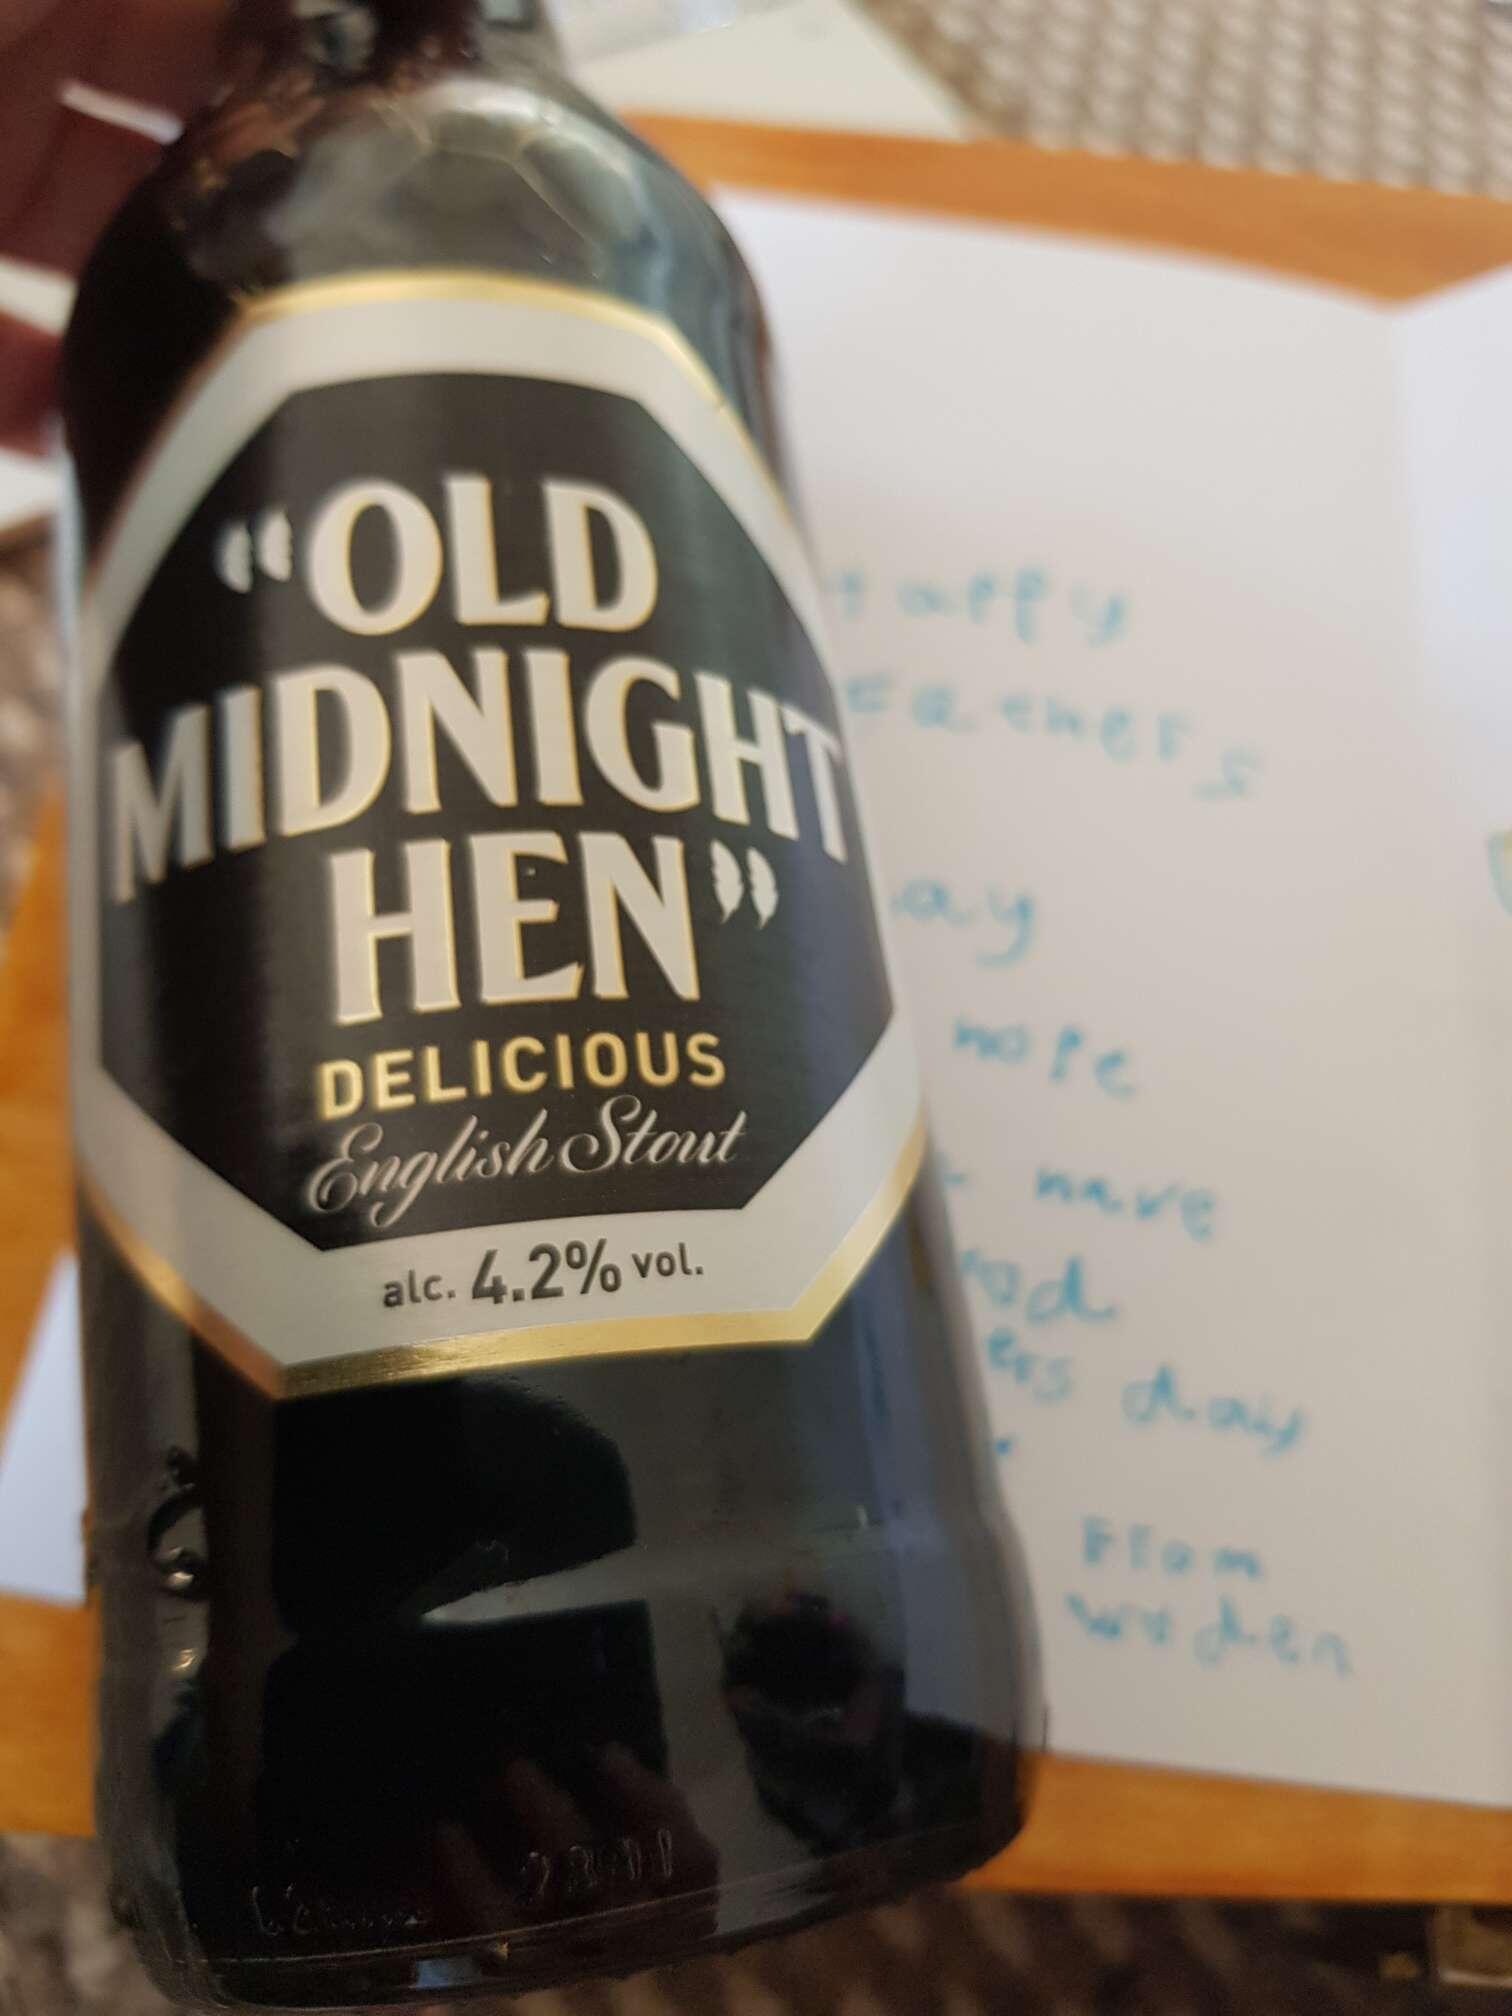 "OLD
MIDNIGHT
HEN"
DELICIOUS
English Stout
alc. 4.2% vol.
Happy
Fathers
Day
hope
have
day
From
woden